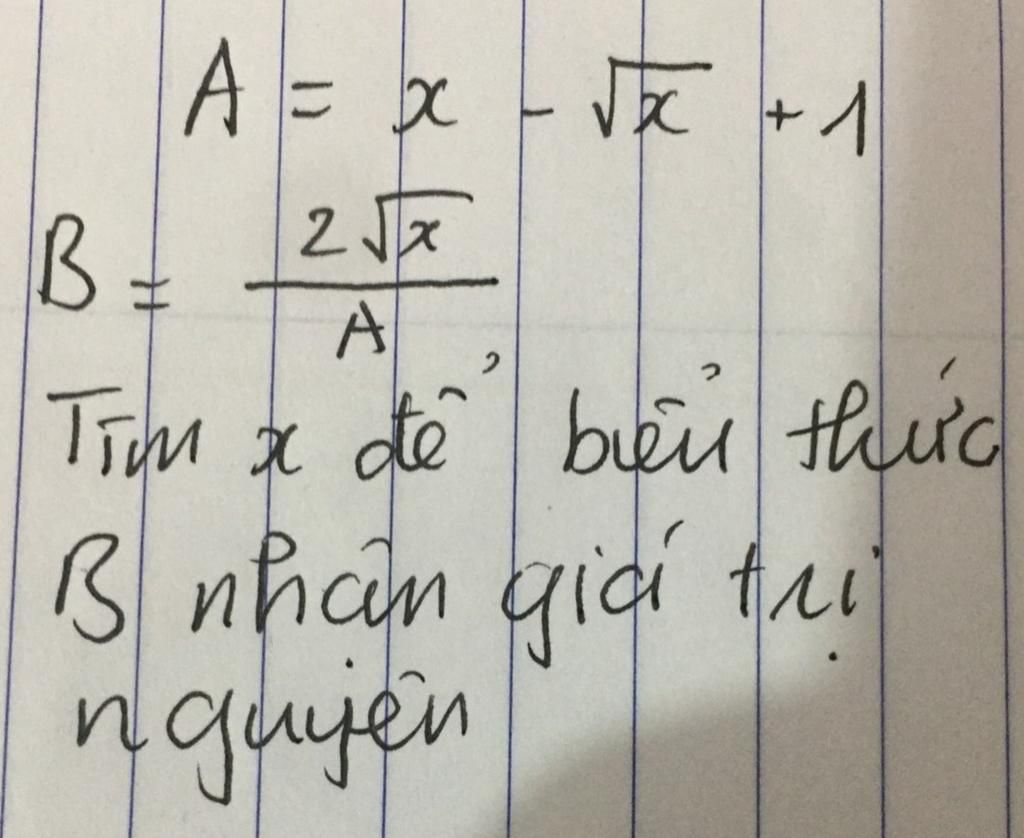 A = x - √x + 1
B = 2√x / A
Tìm x để biểu thức
B nhận giá trị
nguyên